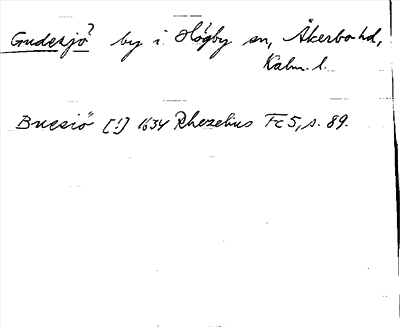 Gudesjö? by i Högby sn, Åkerbo hd,
Kalm. l.
Bucsiö [!] 1634 Rhezelius Fc 5, s. 89.